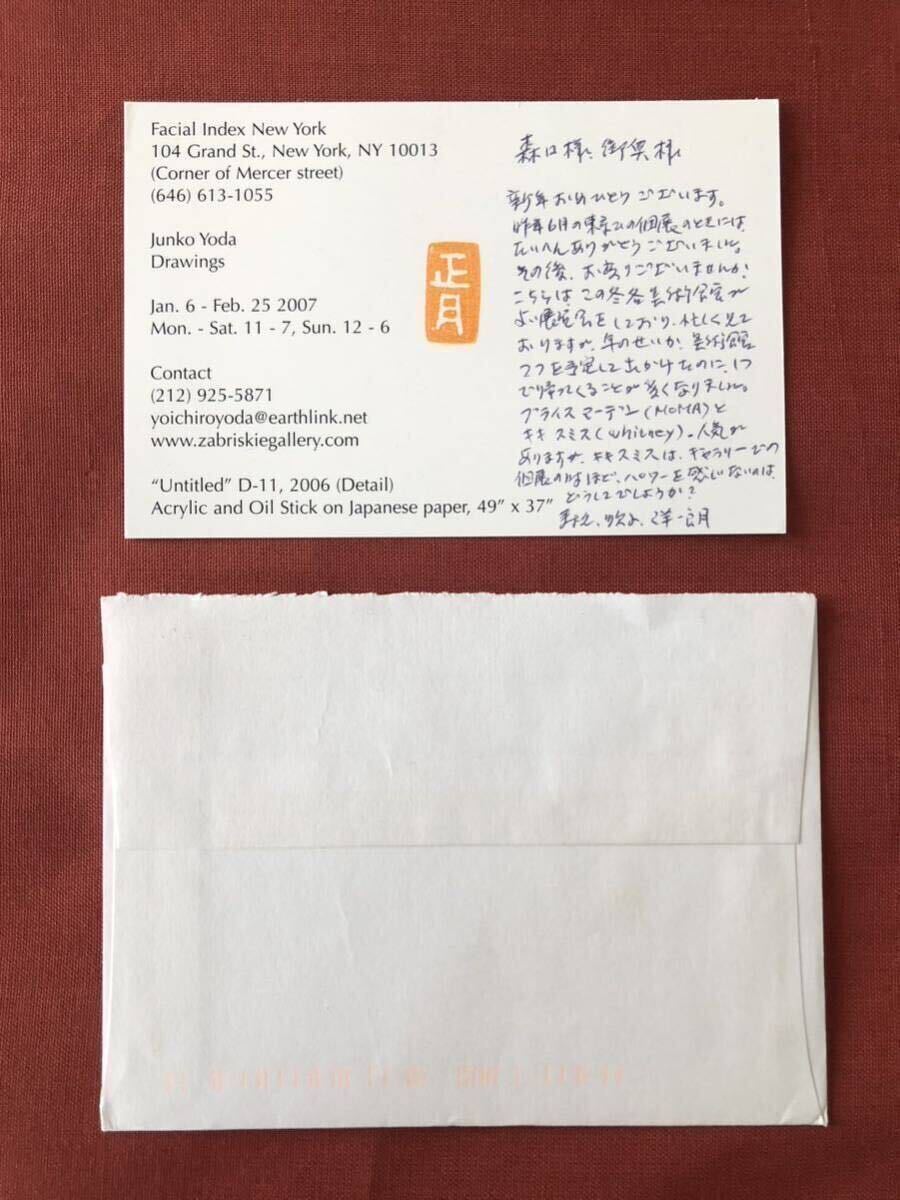 Facial Index New York
104 Grand St., New York, NY 10013
(Corner of Mercer street)
(646) 613-1055
Junko Yoda
Drawings
Jan. 6 - Feb. 25 2007
Mon. - Sat. 11 - 7, Sun. 12 - 6
Contact
(212) 925-5871
yoichiroyoda@earthlink.net
www.zabriskiegallery.com
“Untitled” D-11, 2006 (Detail)
Acrylic and Oil Stick on Japanese paper, 49” x 37”
正月
森口様、御奥様
新年おめでとうございます。
昨年6月の東京での個展のときには、
たいへんありがとうございました。
その後、お変りございませんか？
こちらは、この冬各美術館が
よい展覧会をしており、忙しく見て
おりますが、年のせいか、美術館
2つを予定して出かけたのに、1つ
で帰ってくることが多くなりました。
ブライスマーデン(MOMA)と
キキスミス(Whitney)。人気が
ありますが、キキスミスは、ギャラリーでの
個展の時ほど、パワーを感じないのは、
どうしてでしょうか？
洋一郎